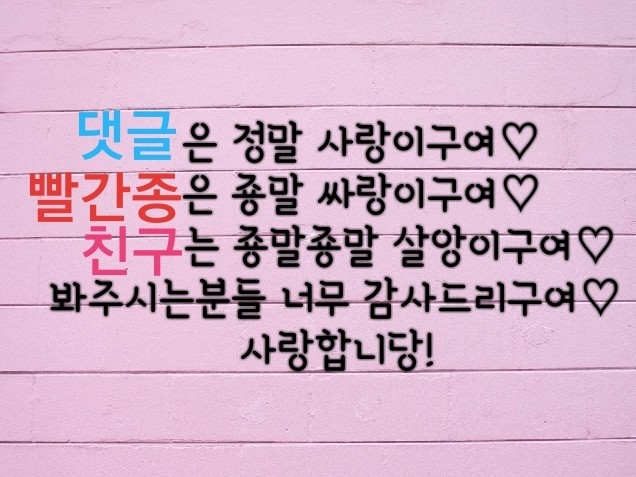 댓글은 정말 사랑이구여♡
빨간종은 죵말 싸랑이구여♡
친구는 죵말죵말 살앙이구여♡
봐주시는분들 너무 감사드리구여♡
사랑합니당!